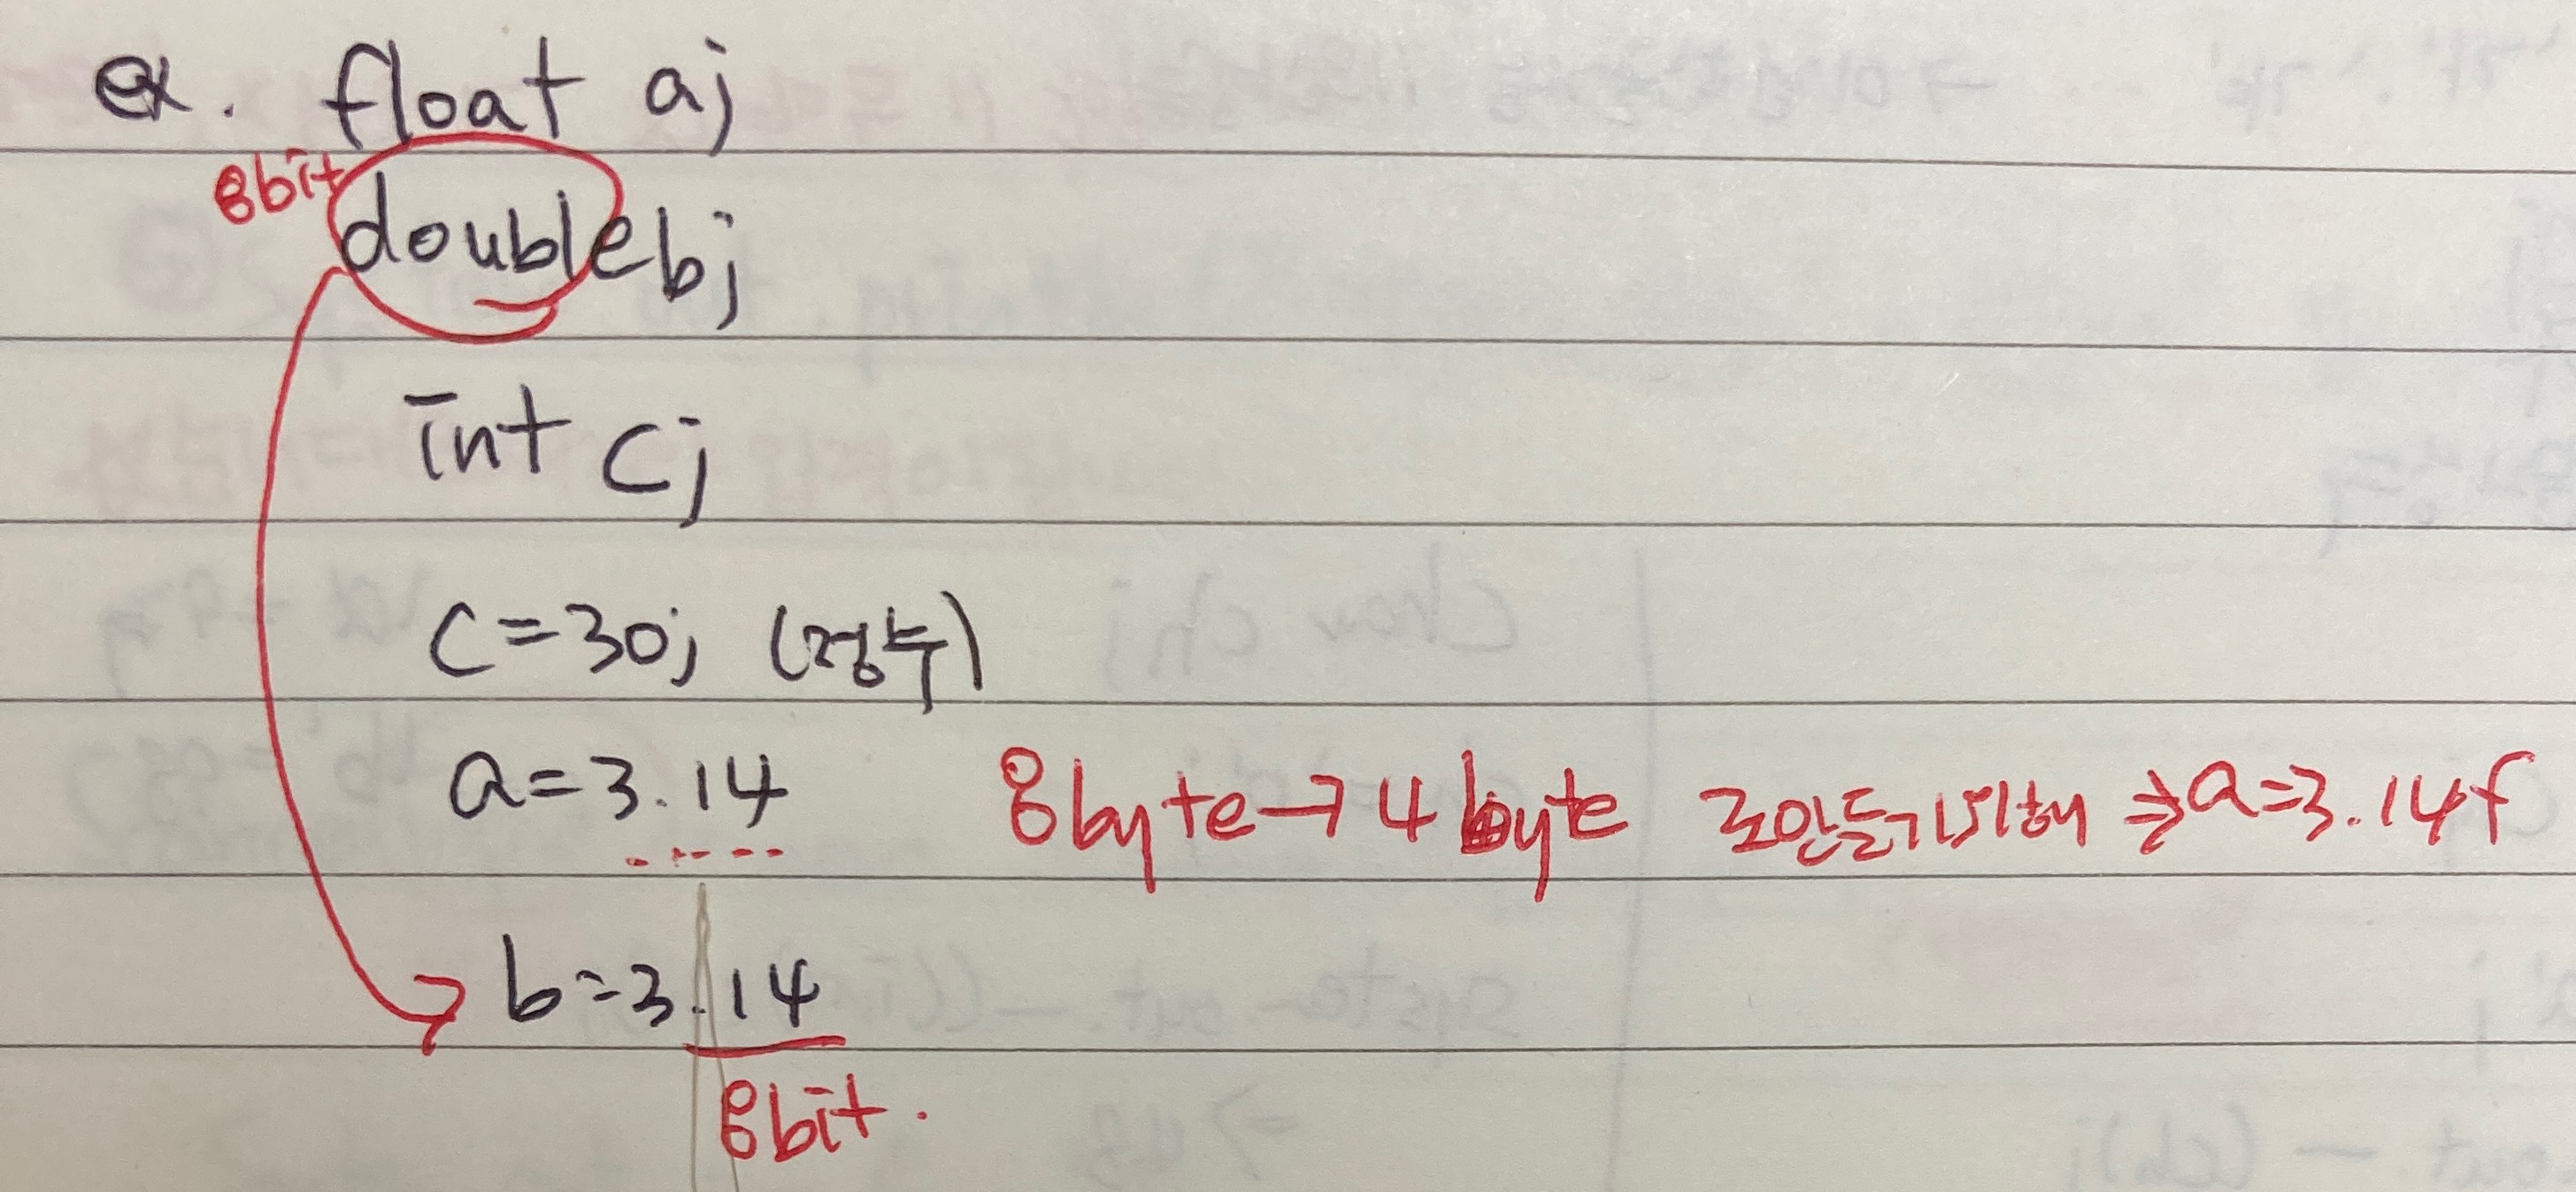 ex. float a;
8bit double b;
int c;
c=30; (정수)
a=3.14 8byte→4byte 로 만들기 위해 ⇒ a=3.14f
b=3.14
8bit.